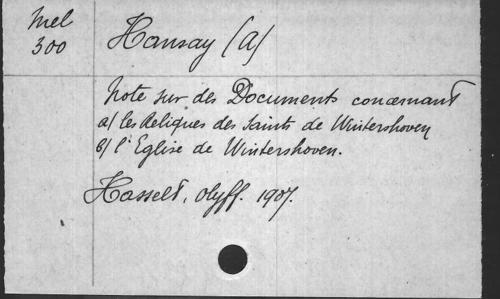 Mel
300
Hansay (A)
Note sur des Documents concernant
a/ les Reliques des Saints de Wintershoven
B/ l'Eglise de Wintershoven.
Hasselt, olyff. 1907.